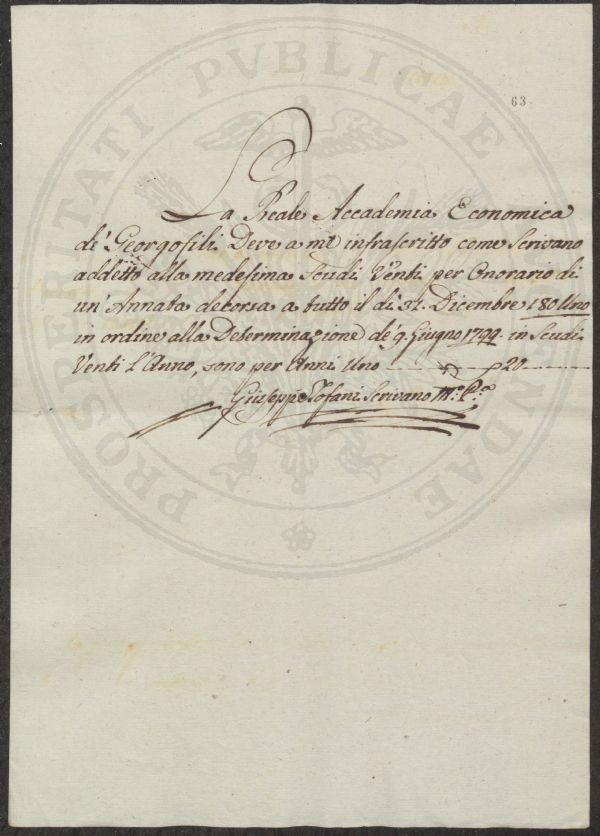 63.
La Reale Accademia Economica
de' Georgofili Deve a me infrascritto come Scrivano
addetto alla medesima Scudi Venti per Onorario di
un' Annata decorsa a tutto il dì 31. Dicembre 180Uno
in ordine alla Determinazione de' 9. Giugno 1799. in Scudi
Venti l'Anno, sono per Anni Uno 20
Giuseppe Tofani Scrivano M.o P.o
PROSPERITATI PVBLICAE AVGENDAE